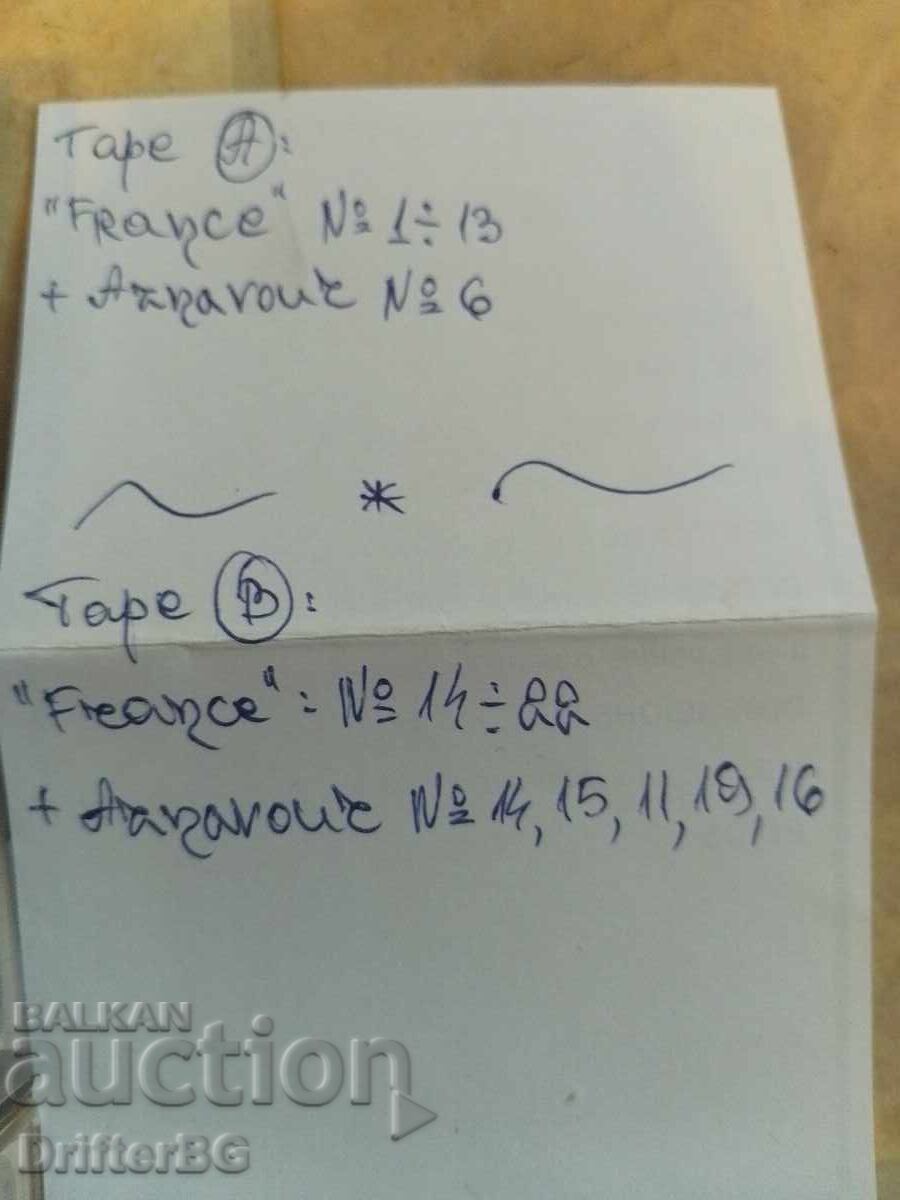 Tape A:
"France" № 1÷13
+ Aznavour № 6
*
Tape B:
"France": № 14÷22
+ Aznavour № 14, 15, 11, 19, 16
BALKAN
auction
DrifterBG